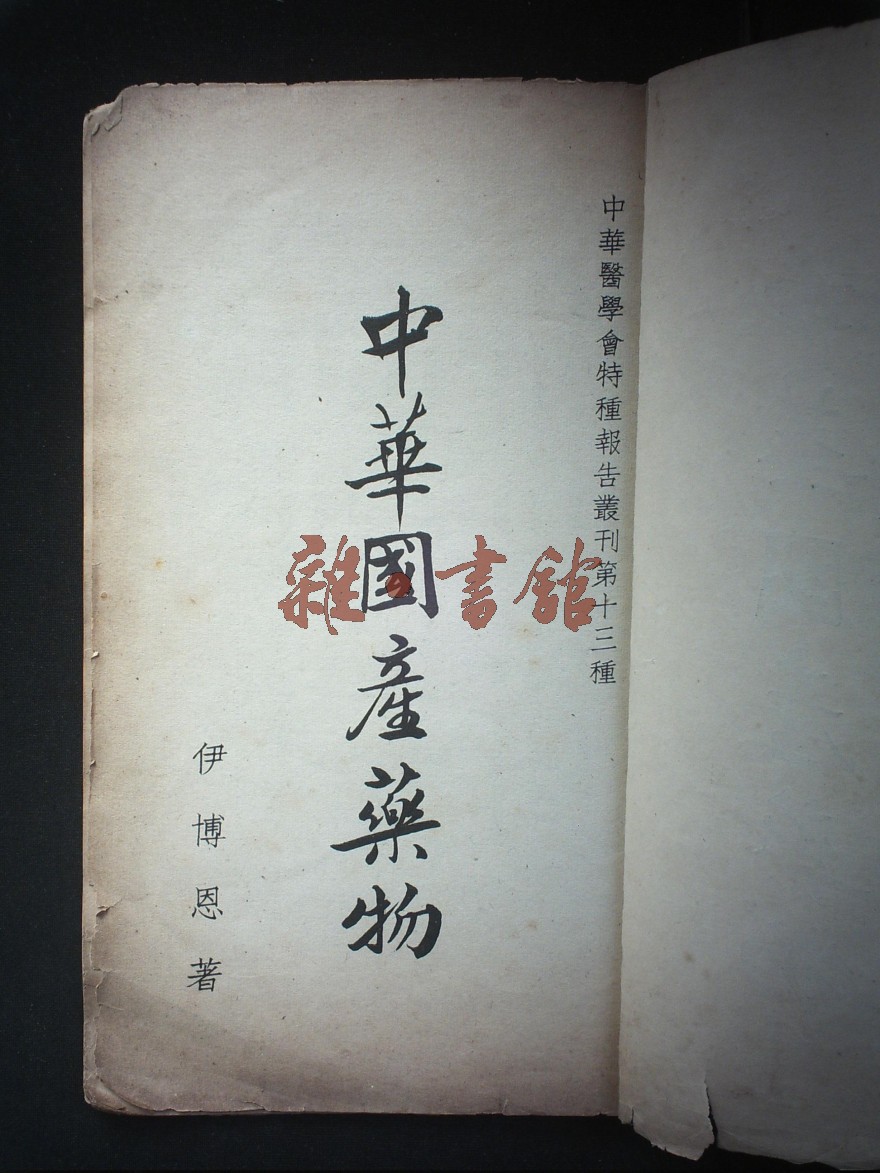 中華醫學會特種報告叢刊第十三種
中華國產藥物
伊博恩著
雜書館